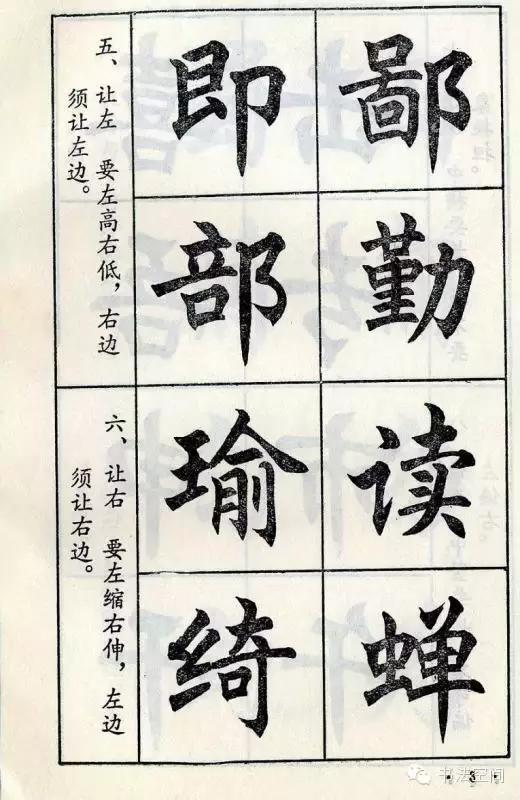 五、让左 要左高右低，右边
须让左边。
鄙即
勤部
六、让右 要左缩右伸，左边
须让右边。
读瑜
蝉绮
书法空间